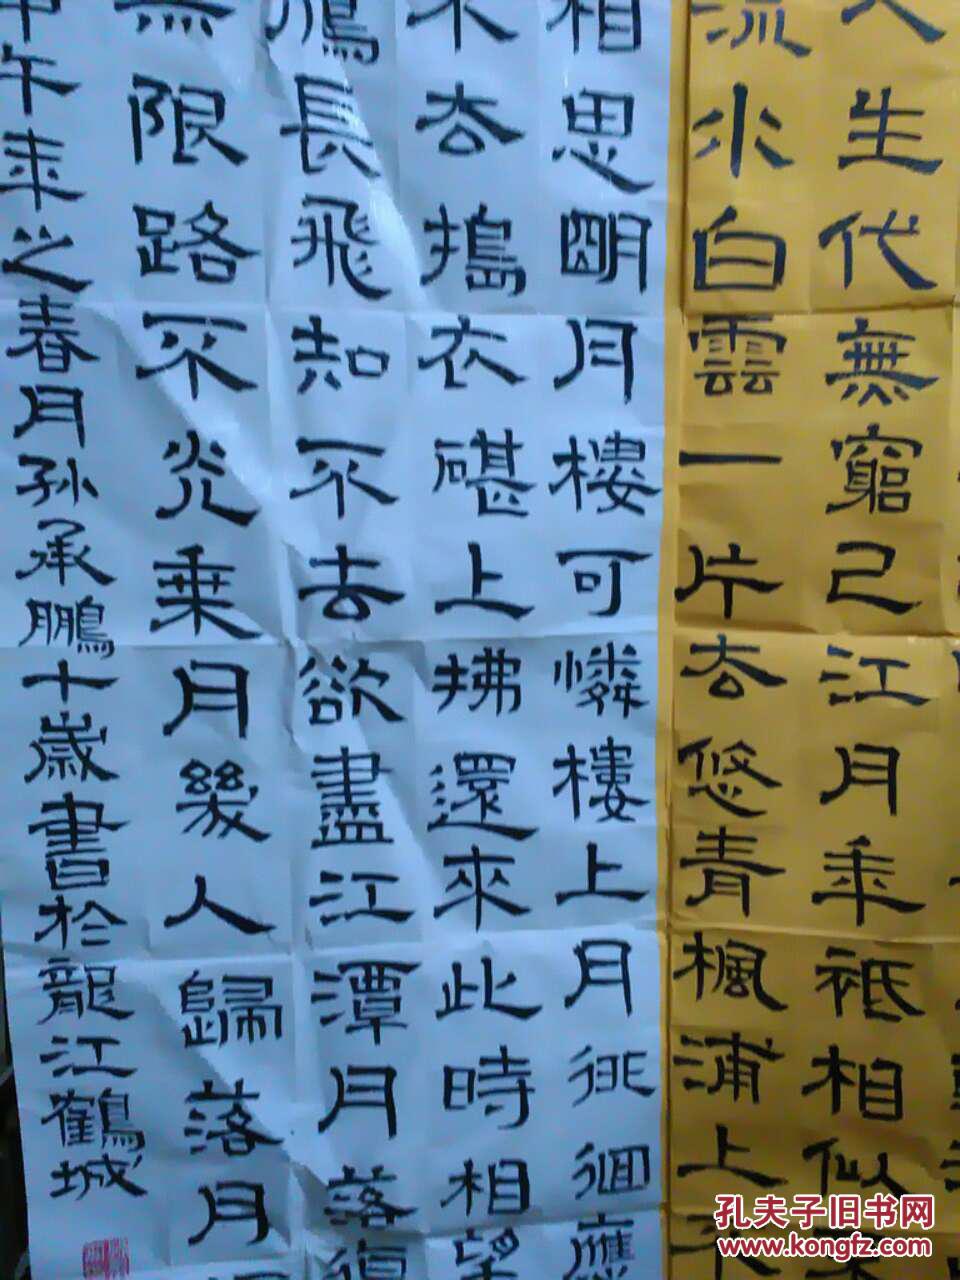 人生代無窮已江月年祗相似
流水白雲一片去悠青楓浦上不
相思明月樓可憐樓上月徘徊應
不去搗衣碪上拂還來此時相望
鴈長飛知不去欲盡江潭月落復
無限路不光乗月幾人歸落月
甲午年之春月孙承鵬十歲書於龍江鶴城
孔夫子旧书网
www.kongfz.com